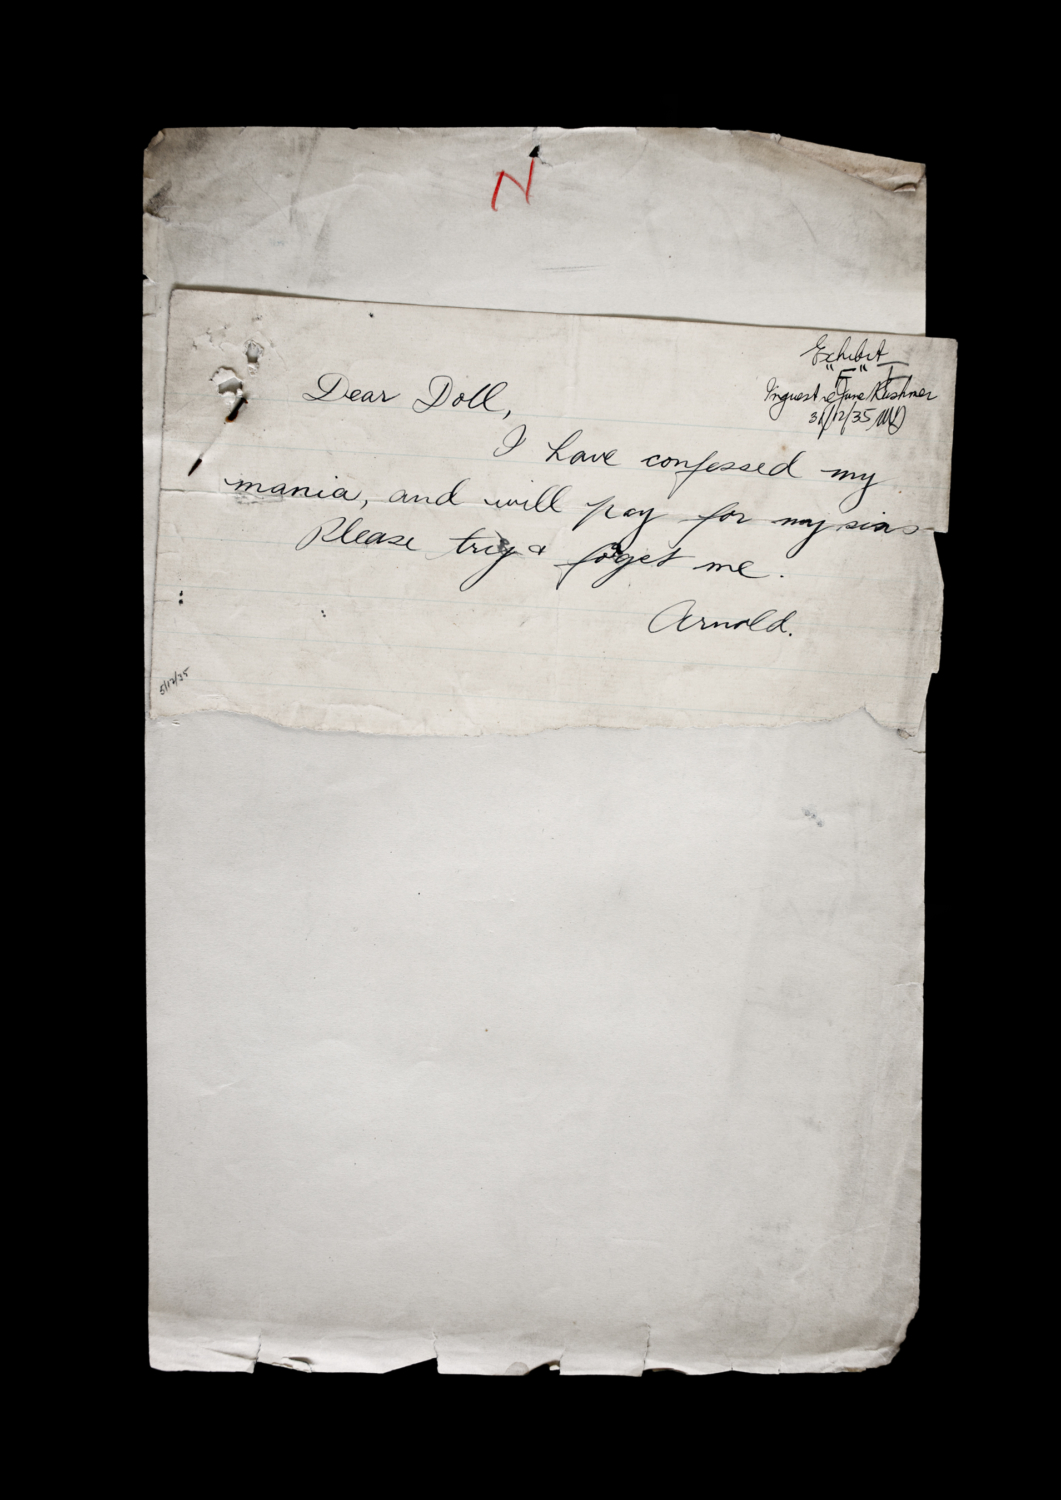 N
Exhibit
"F"
Inquest re June Rushmer
31/12/35
Dear Doll,
I have confessed my
mania, and will pay for my sins
Please try & forget me.
Arnold.
5/12/35